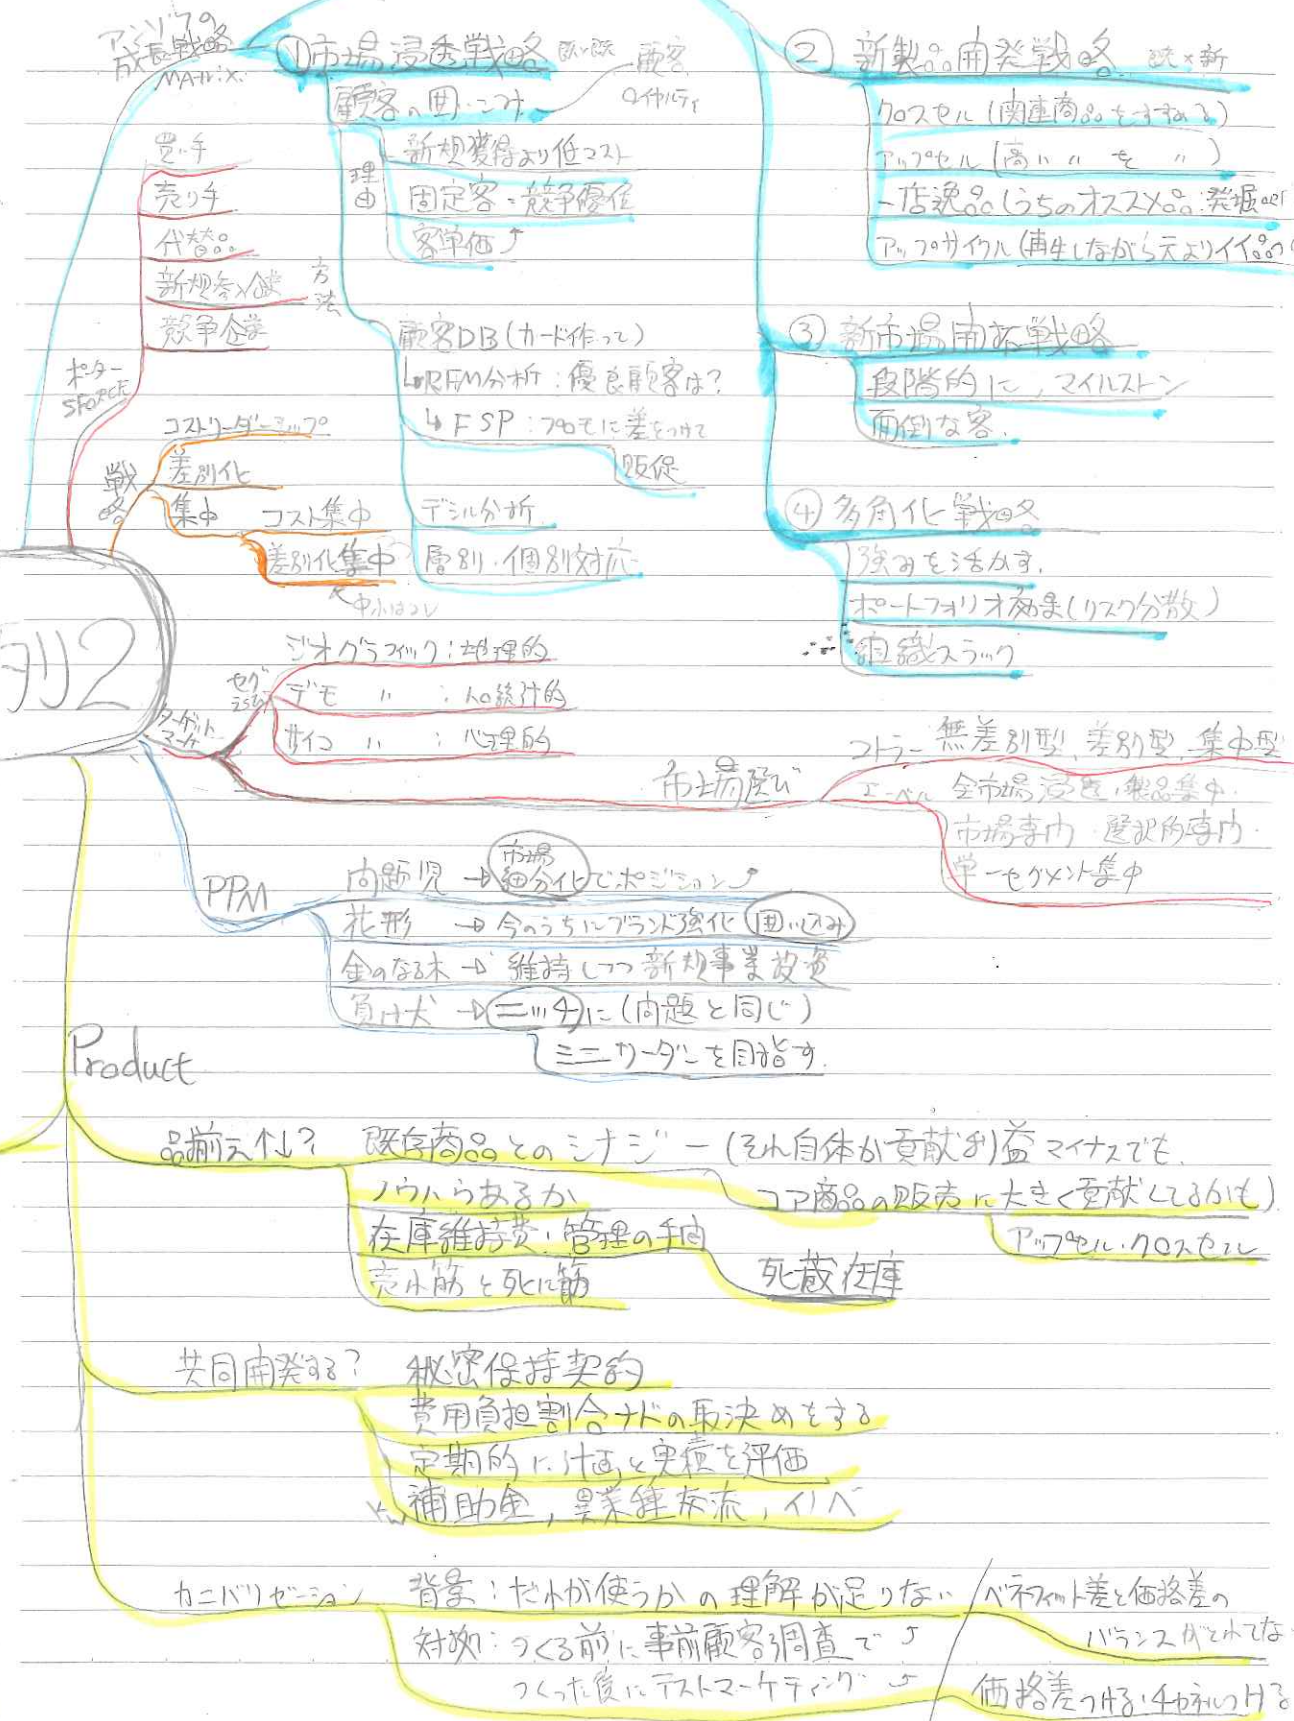 アンゾフの
成長戦略
MATRIX.
①市場浸透戦略 既×既
顧客の囲いこみ
顧客
ロイヤルティ
理由
新規獲得より低コスト
固定客=競争優位
客単価↑
方法
顧客DB(カード作って)
↳RFM分析:優良顧客は?
↳FSP:プロモに差をつけて
販促
デシル分析
層別・個別対応
②新製品開発戦略 既×新
クロスセル(関連商品をすすめる)
アップセル(高〃〃を〃)
一店逸品(うちのオススメ品:発掘
アップサイクル(再生しながら元よりイイ品
③新市場開拓戦略
段階的に,マイルストン
面倒な客.
④多角化戦略
強みを活かす.
ポートフォリオ効果(リスク分散)
組織スラック
ポーター
5FORCE
買い手
売り手
代替品
新規参入企業
競争企業
戦略
コストリーダーシップ
差別化
集中
コスト集中
差別化集中
中小はコレ
タリ2
ターゲット
マーケ
セグ
ジオグラフィック:地理的
デモ〃:人口統計的
サイコ〃:心理的
市場選び
コトラー 無差別型、差別型、集中型
エーベル 全市場浸透・製品集中・
市場専門・選択的専門・
単一セグメント集中
PPM
問題児→市場細分化でポジション↑
花形→今のうちにブランド強化 囲い込み
金のなる木→維持しつつ新規事業投資
負け犬→ニッチに(問題と同じ)
ミニリーダーを目指す.
Product
品揃え↑↓?
既存商品とのシナジー(それ自体が貢献利益マイナスでも、
コア商品の販売に大きく貢献してるかも)
アップセル・クロスセル
ノウハウあるか
在庫維持費・管理の手間
死蔵在庫
売れ筋と死に筋
共同開発する?
秘密保持契約
費用負担割合ナドの取決めをする
定期的に計画と実績を評価
補助金,異業種交流,イノベ
カニバリゼーション
背景:だれが使うかの理解が足りない
ベネフィット差と価格差の
バランスがとれてな
対処:つくる前に事前顧客調査で↑
つくった後にテストマーケティング↑
価格差つける・チャネルつける